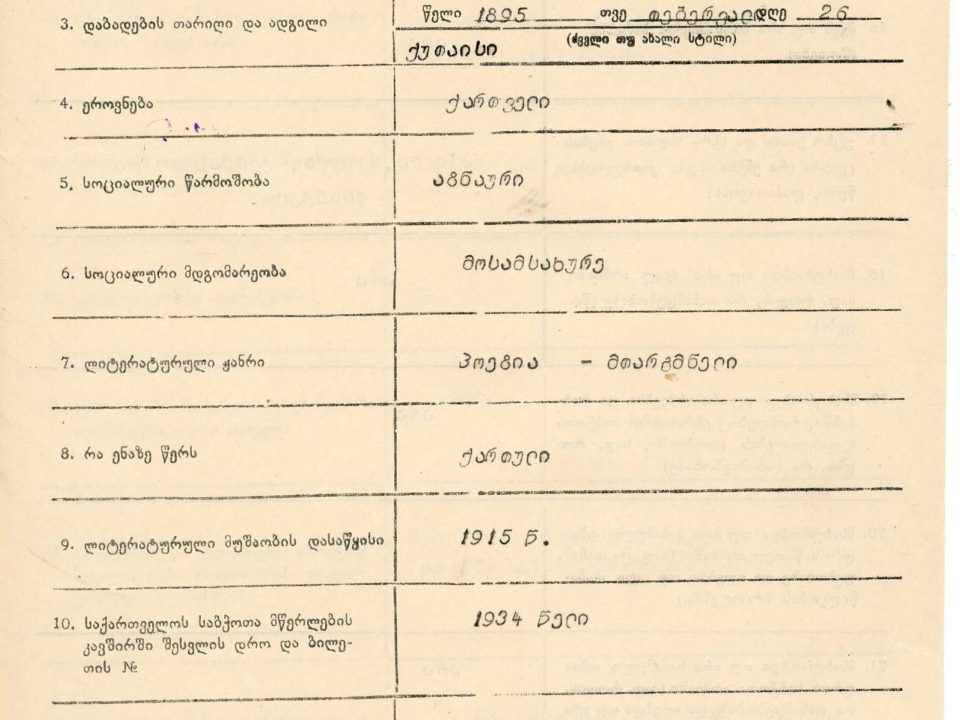 3. დაბადების თარიღი და ადგილი
წელი 1895 თვე თებერვალი დღე 26
(ძველი თუ ახალი სტილი)
ქუთაისი
4. ეროვნება
ქართველი
5. სოციალური წარმოშობა
აზნაური
6. სოციალური მდგომარეობა
მოსამსახურე
7. ლიტერატურული ჟანრი
პოეზია – მთარგმნელი
8. რა ენაზე წერს
ქართული
9. ლიტერატურული მუშაობის დასაწყისი
1915 წ.
10. საქართველოს საბჭოთა მწერლების
კავშირში შესვლის დრო და ბილე-
თის №
1934 წელი